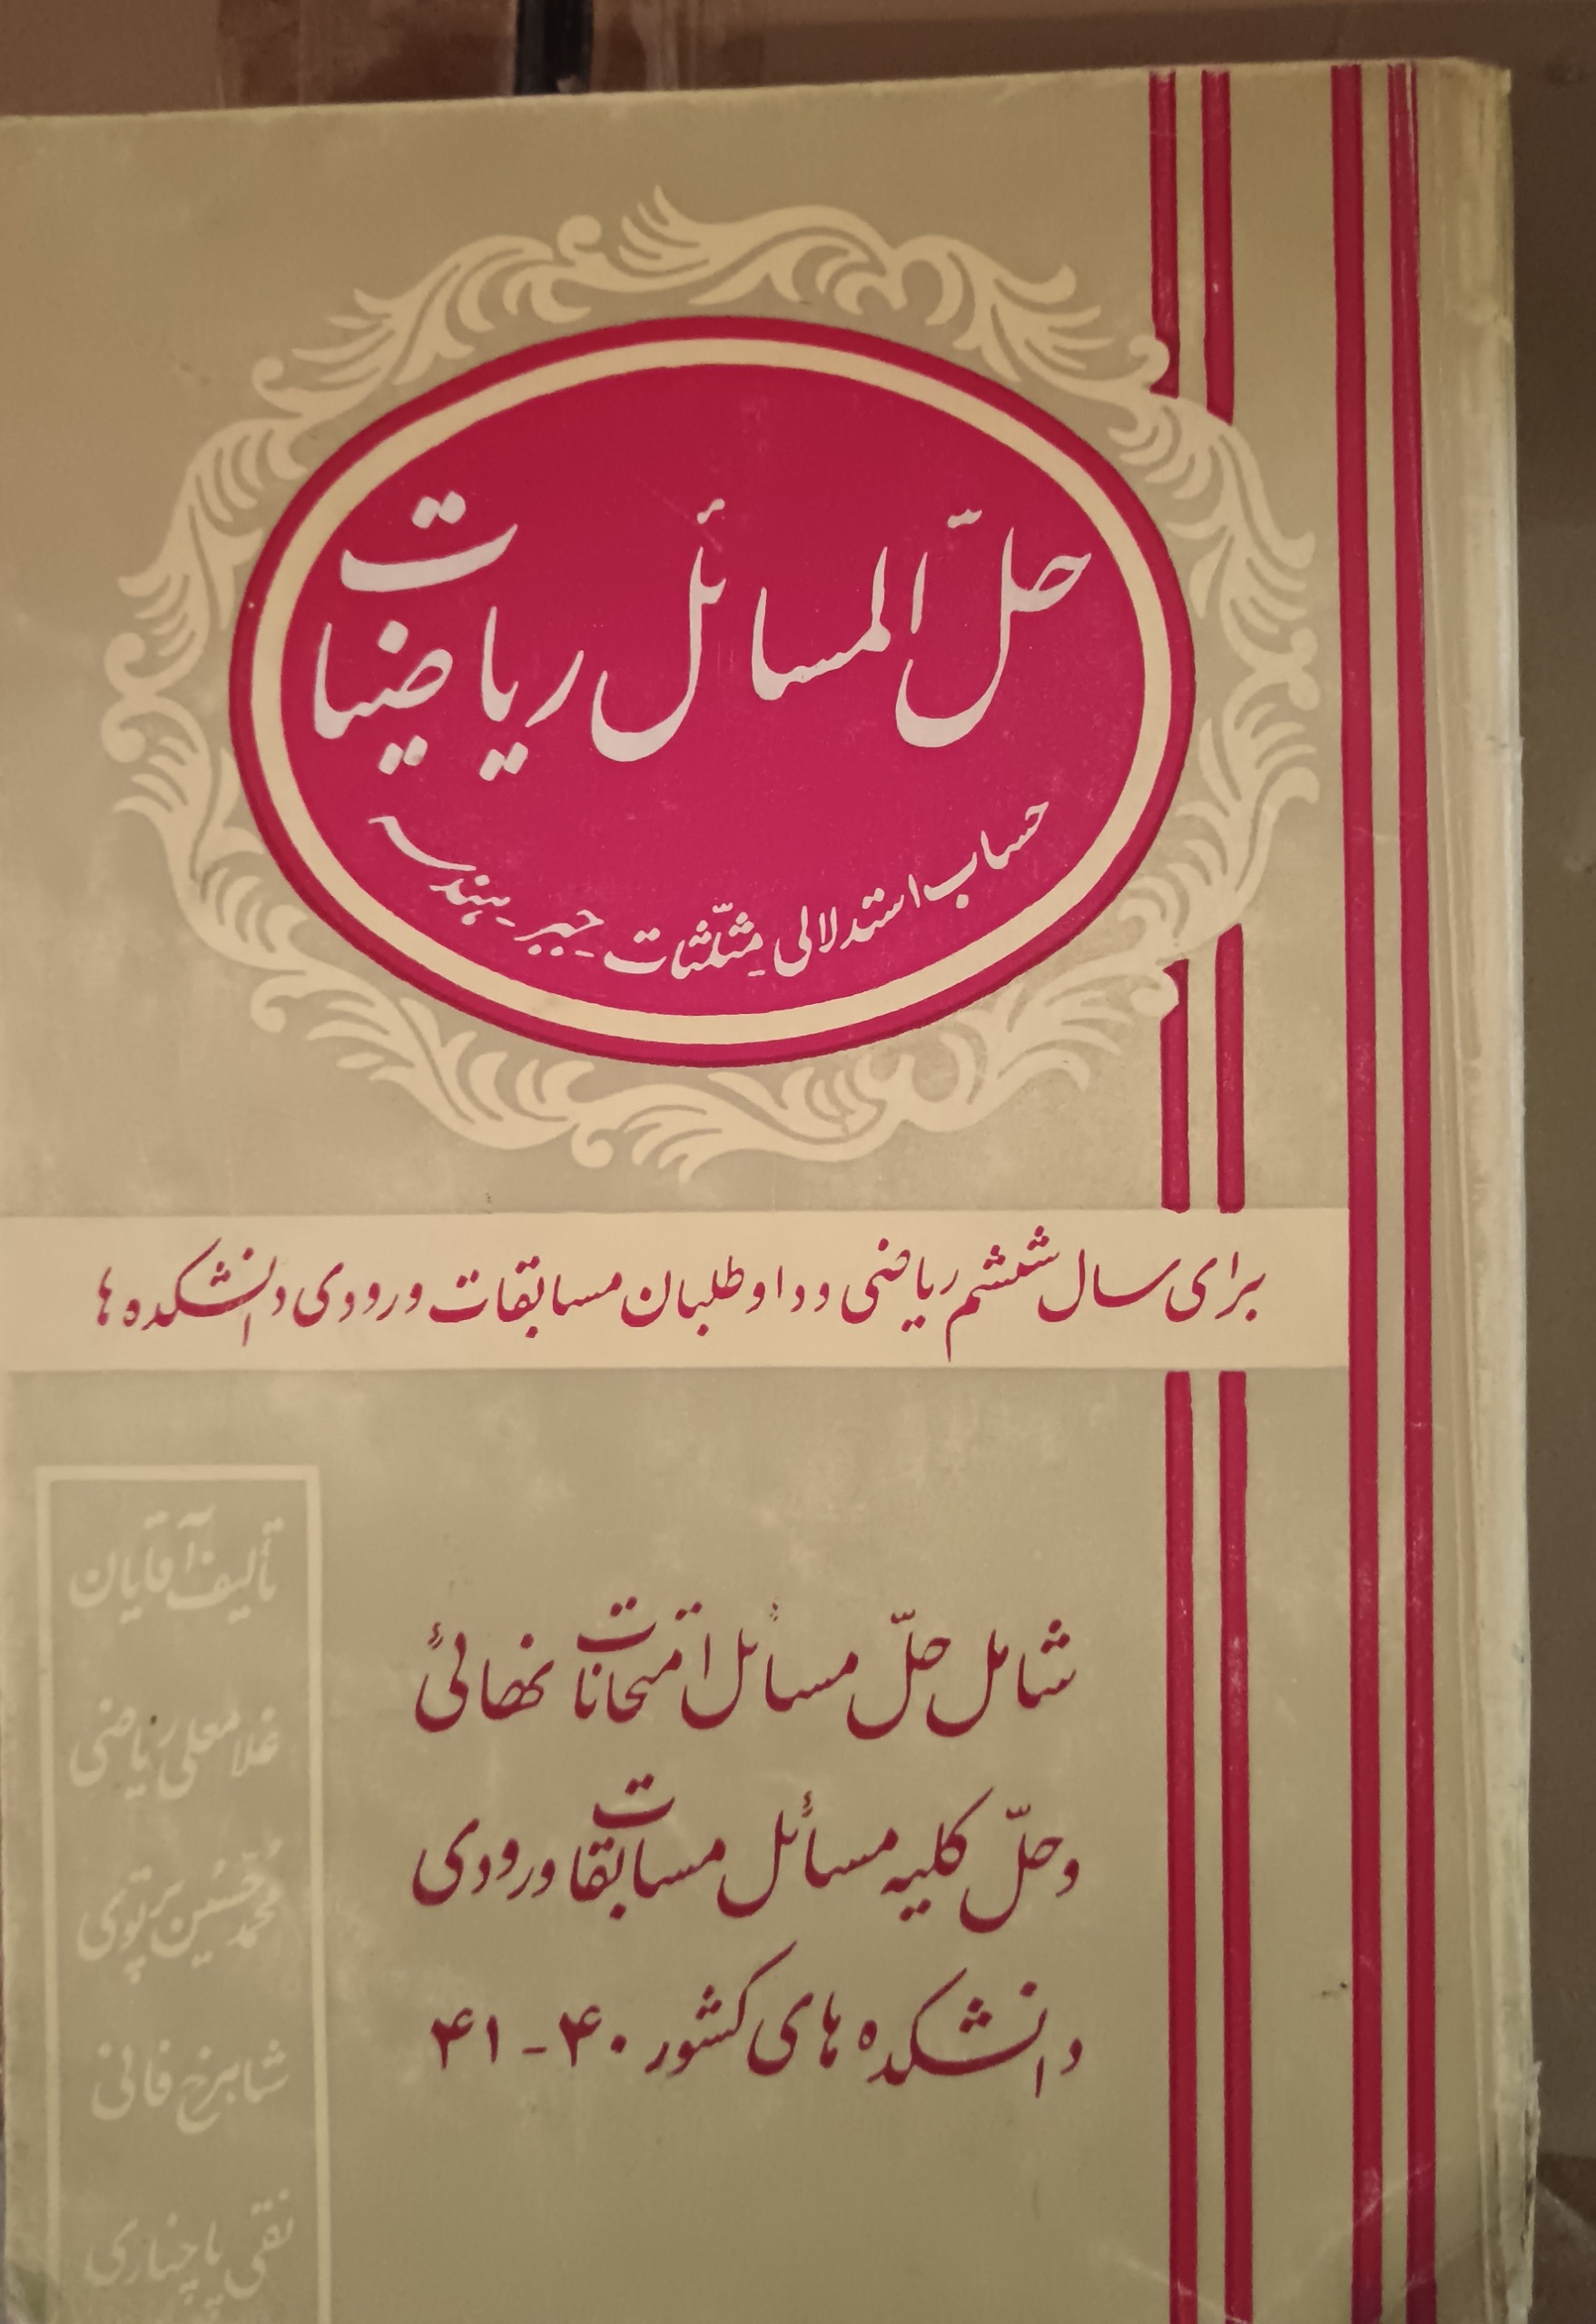 حلّ المسائل ریاضیات
حساب استدلالی - مثلّثات - جبر - هندسه
برای سال ششم ریاضی و داوطلبان مسابقات ورودی دانشکده ها
شامل حلّ مسائل امتحانات نهائی
و حلّ کلیه مسائل مسابقات ورودی
دانشکده های کشور ۴۰ - ۴۱
تألیف آقایان
غلامعلی ریاضی
محمّد حسین پرتوی
شاهرخ فانی
تقی پاچناری